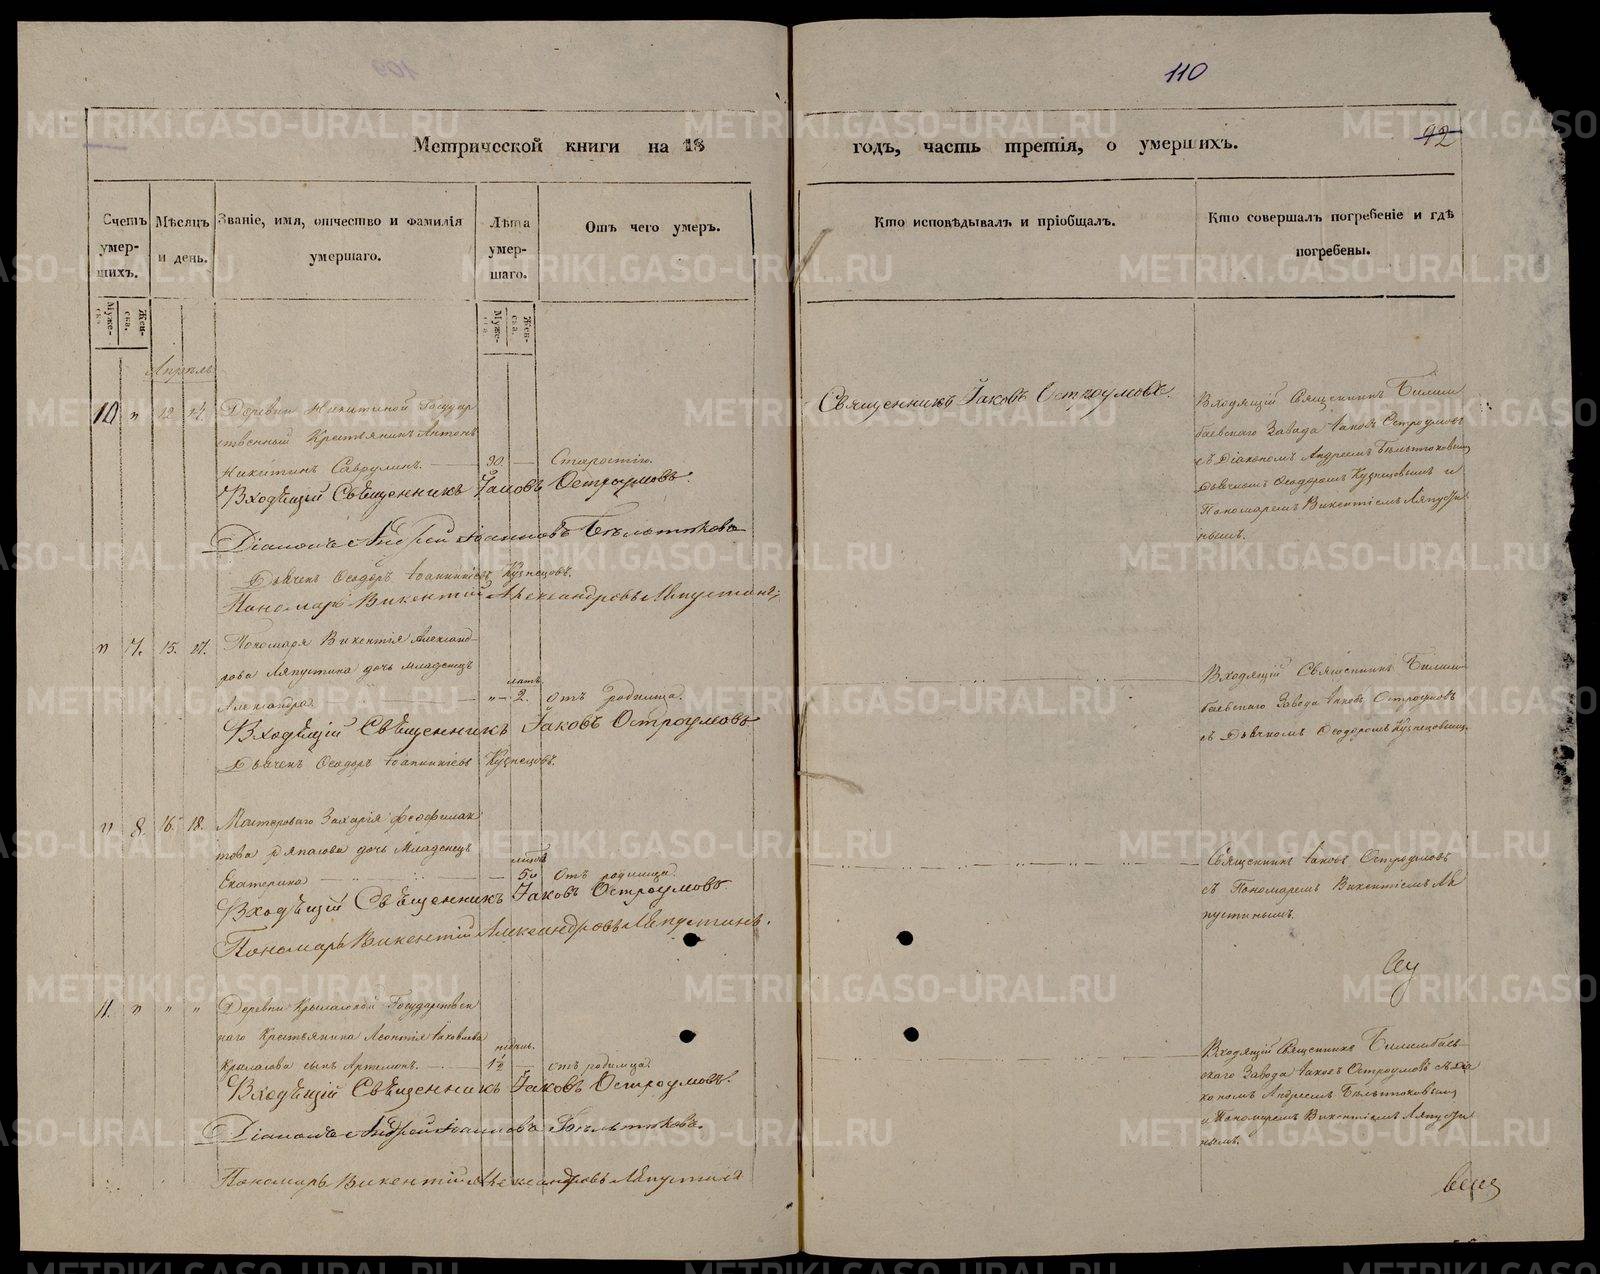 110
92
Метрической книги на 18
годъ, часть третія, о умершихъ.
Счетъ умер-
шихъ.
Мѣсяцъ
и день.
Званіе, имя, отчество и фамилія
умершаго.
Лѣта
умер-
шаго.
Отъ чего умеръ.
Кто исповѣдывалъ и пріобщалъ.
Кто совершалъ погребеніе и гдѣ
погребены.
Муже-
ска.
Жен-
ска.
Муже-
ска.
Жен-
ска.
Апрѣль
10 " 12 14. Деревни Никитиной Государ
ственный Крестьянинъ Антонъ
Никитинъ 90. Старостію.
Входящій Священникъ Іаковъ Остроумовъ.
Діаконъ Андрей Іоанновъ Бѣльтюковъ
Дьячекъ Ѳеодоръ Іоанникіевъ Кузнецовъ.
Пономарь Викентій Александровъ Ляпустинъ
Священникъ Іаковъ Остроумовъ.
Входящій Священникъ Билим
баевскаго Завода Іаковъ Остроумовъ
съ Діакономъ Андреемъ Бѣльтюковымъ
Дьячкомъ Ѳеодоромъ Кузнецовымъ и
Пономаремъ Викентіемъ Ляпусти
нымъ.
" 7. 15. 17. Пономаря Викентія Александ-
рова Ляпустина дочь младенецъ
Александра. " 2. отъ родимца.
Входящій Священникъ Іаковъ Остроумовъ
Дьячекъ Ѳеодоръ Іоанникіевъ Кузнецовъ.
Входящій Священникъ Билим-
баевскаго Завода Іаковъ Остроумовъ
съ Дьячкомъ Ѳеодоромъ Кузнецовымъ.
" 8. 16. 18. Мастероваго Захарія Ѳеофилак
това дочь Младенецъ
Екатерина отъ родимца.
Входящій Священникъ Іаковъ Остроумовъ
Пономарь Викентій Александровъ Ляпустинъ.
Священникъ Іаковъ Остроумовъ
съ Пономаремъ Викентіемъ Ля
пустинымъ.
11. " " " Деревни Крылатовой Государствен
наго Крестьянина Леонтія Яковлева
сынъ Артемонъ. 1½ отъ родимца.
Входящій Священникъ Іаковъ Остроумовъ.
Діаконъ Андрей Іоанновъ Бѣльтюковъ.
Пономарь Викентій Александровъ Ляпустинъ
Входящій Священникъ Билимбаев-
скаго Завода Іаковъ Остроумовъ съ Діа
кономъ Андреемъ Бѣльтюковымъ
и Пономаремъ Викентіемъ Ляпусти
нымъ.
METRIKI.GASO-URAL.RU